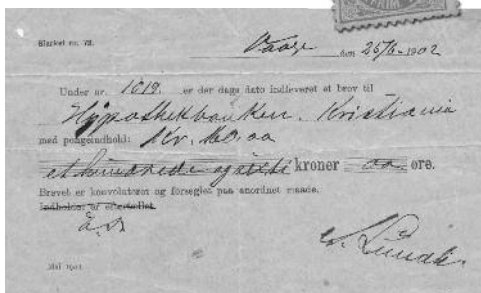 Blanket nr. 72.
Vaage den 25/6 1902
Under nr. 1619. er der dags dato indleveret et brev til
Hypothekbanken. Kristiania
med pengeindhold: Kr. 160.00
et hundrede og seksti kroner 00 øre.
Brevet er konvoluteret og forseglet paa anordnet maade.
Indholdet er eftertællet.
Mai 1901.